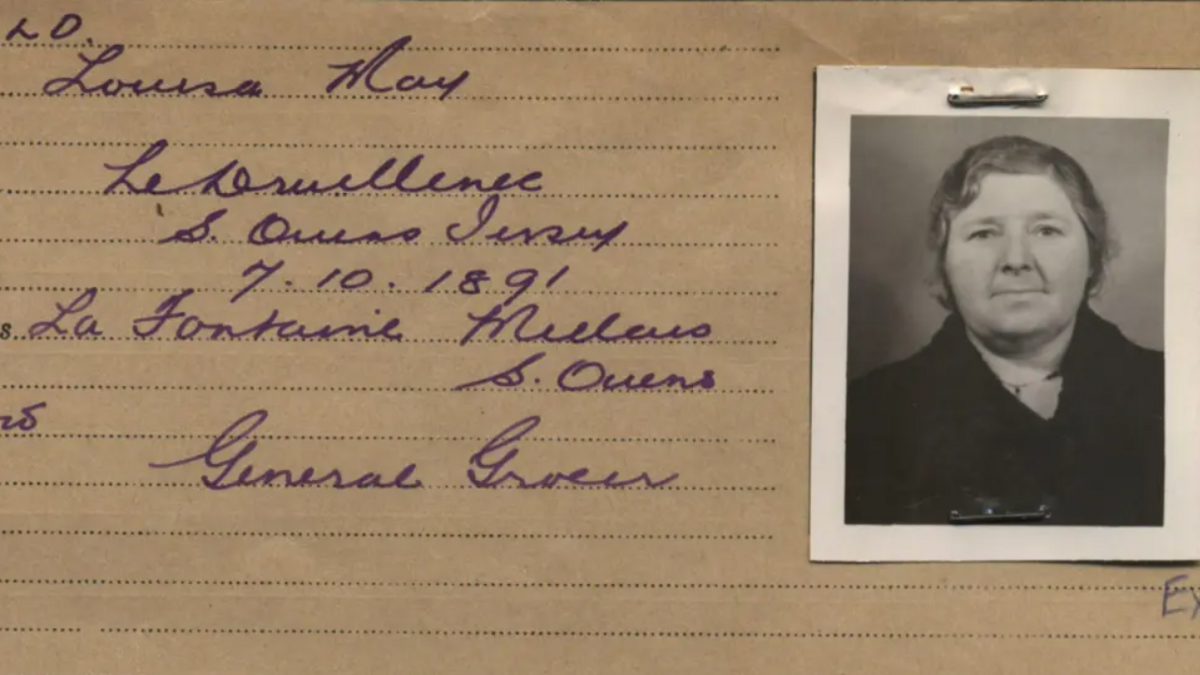 LD.
Louisa May
Le Druillenec
S. Ouens Jersey
7.10.1891
s. La Fontaine Millais
S. Ouens
General Grocer
Ex